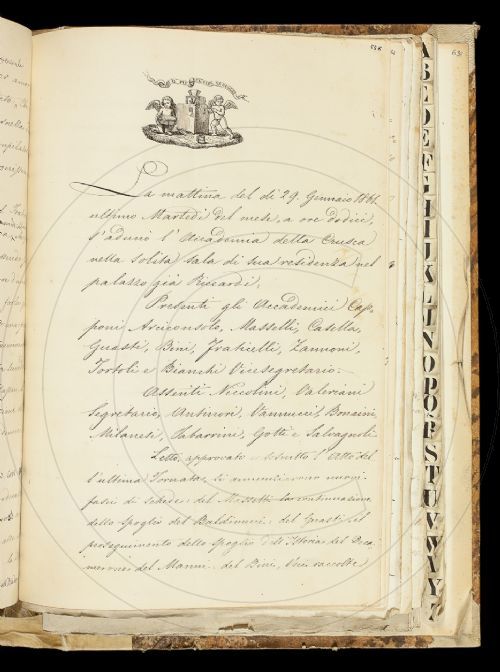 La mattina del dì 29. Gennaio 1861
ultimo Martedì del mese, a ore dodici,
s'adunò l'Accademia della Crusca
nella solita Sala di sua residenza nel
palazzo già Riccardi.
Presenti gli Accademici Cap-
poni Arciconsolo, Masselli, Casella,
Guasti, Bini, Fraticelli, Zannoni,
Tortoli e Bianchi Vicesegretario.
Assenti Niccolini, Valeriani
Segretario, Antinori, Vannucci, Bonaini,
Milanesi, Tabarrini, Gotti e Salvagnoli
Letto, approvato e l'Atto del
l'ultima Tornata, si annunziarono nuovi
fasci di schede: del la continuazione
dello Spoglio del Baldinucci: del Guasti, il
proseguimento dello Spoglio dell'Istoria del Deca-
merone del Manni: del Bini, varie raccolte
A
B
E
D
E
F
G
H
I
J
K
L
N
O
P
Q
R
S
T
U
V
W
Y
Z